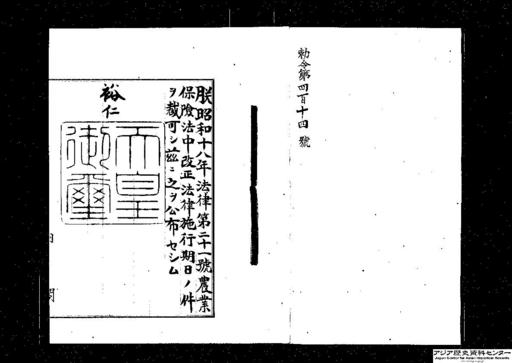 勅令第四百十四號
朕昭和十八年法律第二十一號農業
保險法中改正法律施行期日ノ件
ヲ裁可シ茲ニ之ヲ公布セシム
裕仁
天皇
御璽
内閣
アジア歴史資料センター
Japan Center for Asian Historical Records